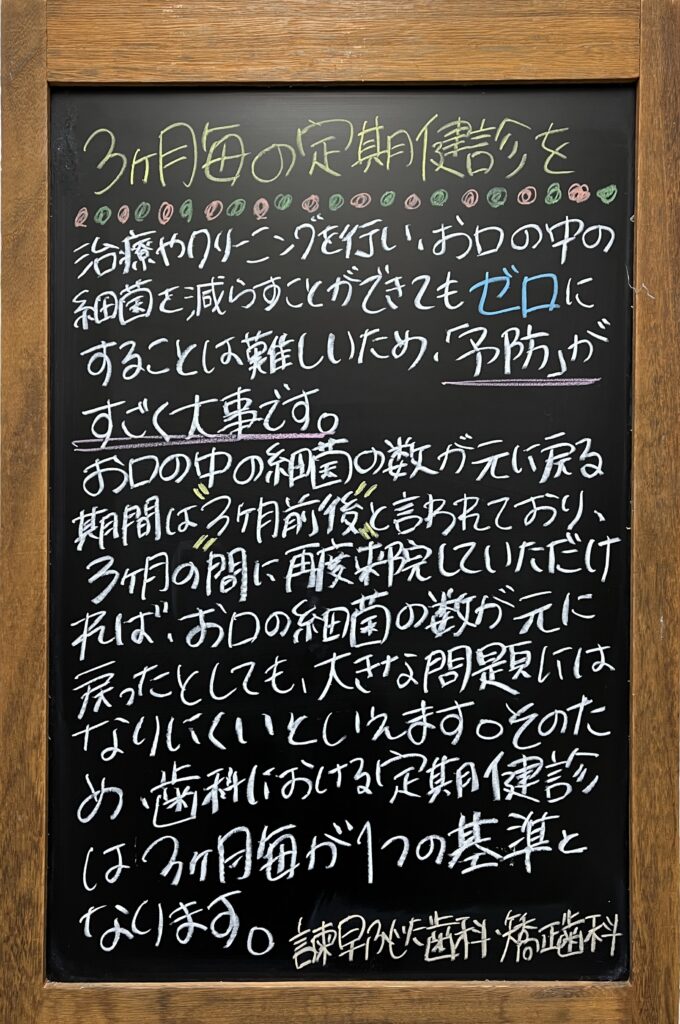 3ヶ月毎の定期健診を
治療やクリーニングを行い、お口の中の
細菌を減らすことができてもゼロに
することは難しいため、「予防」が
すごく大事です。
お口の中の細菌の数が元に戻る
期間は"3ヶ月前後"と言われており、
3ヶ月の間に再度来院していただけ
れば、お口の細菌の数が元に
戻ったとしても、大きな問題には
なりにくいといえます。そのた
め、歯科における定期健診
は3ヶ月毎が1つの基準と
なります。
諫早ふじた歯科・矯正歯科